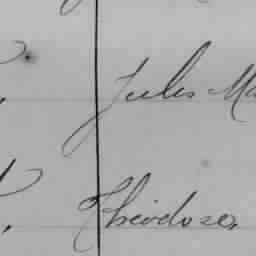 Jules Ma
Théodore,